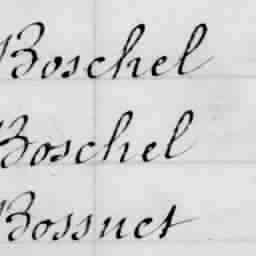 Boschel
Boschel
Bossuet